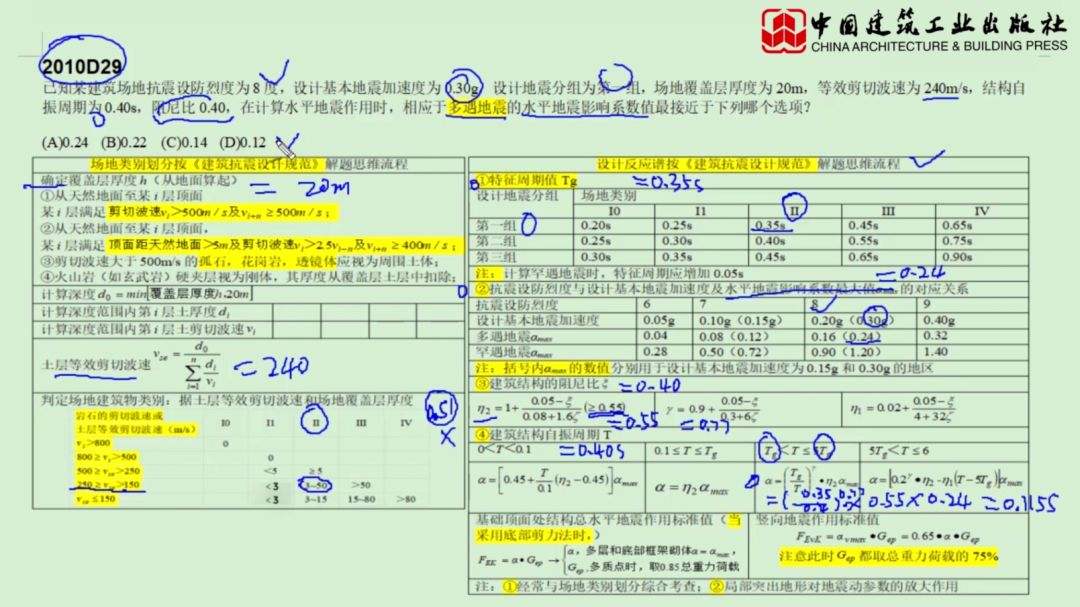 中国建筑工业出版社
CHINA ARCHITECTURE & BUILDING PRESS
2010D29
已知某建筑场地抗震设防烈度为 8 度，设计基本地震加速度为 0.30g，设计地震分组为第一组，场地覆盖层厚度为 20m，等效剪切波速为 240m/s，结构自
振周期为 0.40s，阻尼比 0.40，在计算水平地震作用时，相应于多遇地震的水平地震影响系数值最接近于下列哪个选项？
(A)0.24 (B)0.22 (C)0.14 (D)0.12
场地类别划分按《建筑抗震设计规范》解题思维流程
确定覆盖层厚度 h（从地面算起） = 20m
①从天然地面至某 i 层顶面
某 i 层满足 剪切波速vᵢ>500m/s及vᵢ₊ₙ≥500m/s；
②从天然地面至某 i 层顶面，
某 i 层满足 顶面距天然地面>5m及剪切波速vᵢ>2.5vᵢ₋ₙ及vᵢ₊ₙ≥400m/s；
③剪切波速大于 500m/s 的孤石，花岗岩，透镜体应视为周围土体；
④火山岩（如玄武岩）硬夹层视为刚体，其厚度从覆盖层土层中扣除；
计算深度 d₀=min[覆盖层厚度h,20m]
计算深度范围内第 i 层土厚度 dᵢ
计算深度范围内第 i 层土剪切波速 vᵢ
土层等效剪切波速 vse = d₀/∑(i=1→n) dᵢ/vᵢ = 240
判定场地建筑物类别：据土层等效剪切波速和场地覆盖层厚度
0.51 ×
岩石的剪切波速或
土层等效剪切波速（m/s） I0 I1 II III IV
vs>800 0
800≥vs>500 0
500≥vse>250 <5 ≥5
250≥vse>150 <3 3~50 >50
vse≤150 <3 3~15 15~80 >80
设计反应谱按《建筑抗震设计规范》解题思维流程
①特征周期值 Tg =0.35s
设计地震分组 场地类别
I0 I1 II III IV
第一组 0.20s 0.25s 0.35s 0.45s 0.65s
第二组 0.25s 0.30s 0.40s 0.55s 0.75s
第三组 0.30s 0.35s 0.45s 0.65s 0.90s
注：计算罕遇地震时，特征周期应增加 0.05s =0.24
②抗震设防烈度与设计基本地震加速度及水平地震影响系数最大值αmax 的对应关系
抗震设防烈度 6 7 8 9
设计基本地震加速度 0.05g 0.10g（0.15g） 0.20g（0.30g） 0.40g
多遇地震αmax 0.04 0.08（0.12） 0.16（0.24） 0.32
罕遇地震αmax 0.28 0.50（0.72） 0.90（1.20） 1.40
注：括号内αmax 的数值分别用于设计基本地震加速度为 0.15g 和 0.30g 的地区
③建筑结构的阻尼比ξ =0.40
η₂=1+(0.05-ξ)/(0.08+1.6ξ)(≥0.55) =0.55 γ=0.9+(0.05-ξ)/(0.3+6ξ) =0.77 η₁=0.02+(0.05-ξ)/(4+32ξ)
④建筑结构自振周期 T =0.40s
0<T<0.1 0.1≤T≤Tg Tg<T≤5Tg 5Tg<T≤6
α=[0.45+T/0.1(η₂-0.45)]αmax α=η₂αmax α=(Tg/T)^γ•η₂αmax α=[0.2^γ•η₂-η₁(T-5Tg)]αmax
=(0.35/0.4)^0.77×0.55×0.24=0.1155
基础顶面处结构总水平地震作用标准值（当
采用底部剪力法时，） 竖向地震作用标准值
FEK=α•Gep→{α，多层和底部框架砌体α=αmax，
Gep，多质点时，取0.85总重力荷载
FEvK=αvmax•Gep=0.65•α•Gep
注意此时 Gep 都取总重力荷载的 75%
注：①经常与场地类别划分综合考查；②局部突出地形对地震动参数的放大作用